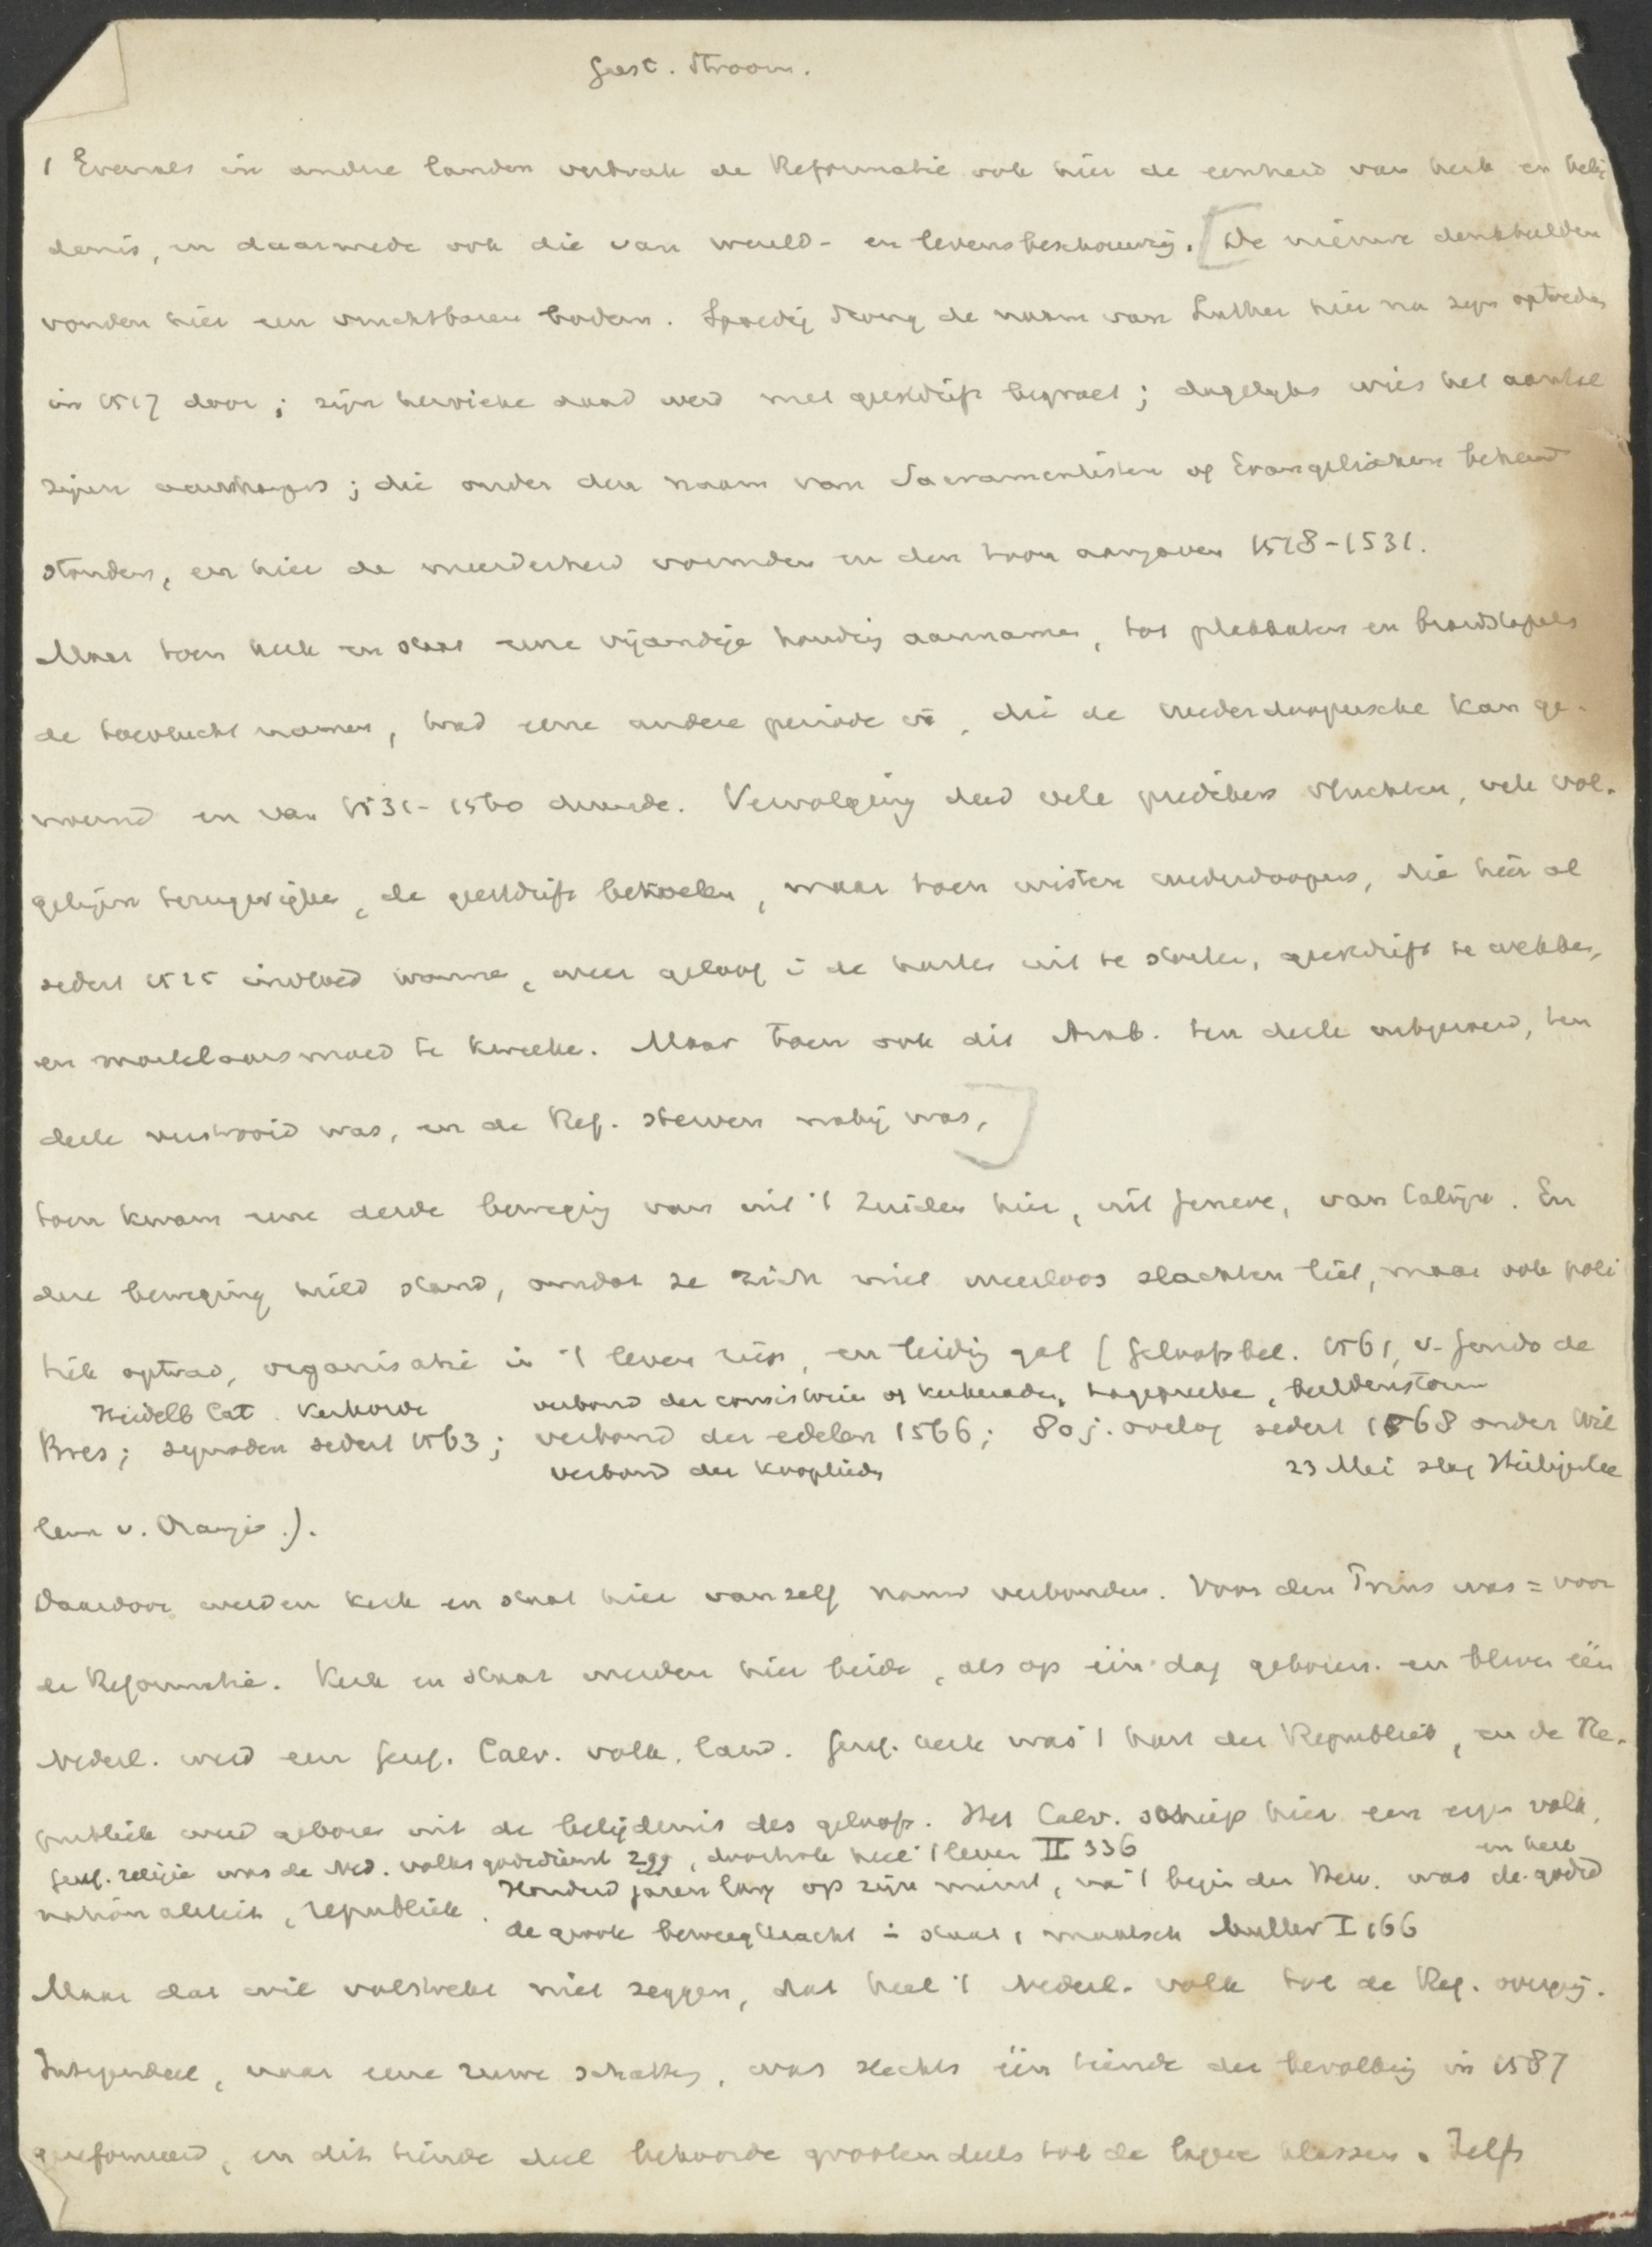 Geest. Stroom.
1 Evenals in andere landen verbrak de Reformatie ook hier de eenheid van kerk en belij
denis, en daarmede ook die van wereld- en levensbeschouwing. [De nieuwe denkbeelden
vonden hier een vruchtbaren bodem. Spoedig drong de naam van Luther hier na zijn optreden
in 1517 door; zijn heroieke daad werd met geestdrift begroet; dagelijks wies het aantal
zijner aanhangers; die onder den naam van Sacramentisten of Evangelischen bekend
stonden, en hier de meerderheid vormden en den toon aangaven 1518-1531.
Maar toen kerk en staat eene vijandige houding aannamen, tot plakkaten en brandstapels
de toevlucht namen, trad eene andere periode in, die de wederdoopersche kan ge-
noemd en van 1531-1560 duurde. Vervolging deed vele predikers vluchten, vele vol-
gelingen terugwijken, de geestdrift bekoelen, maar toen wisten wederdoopers, die hier al
sedert 1525 invloed wonnen, weer geloof in de harten uit te storten, geestdrift te wekken,
en martelaarsmoed te kweeken. Maar toen ook dit Anab. ten deele ontgoocheld, ten
deele verstrooid was, en de Ref. sterven nabij was,]
toen kwam eene derde beweging van uit 't Zuiden hier, uit Geneve, van Calvijn. En
deze beweging hield stand, omdat ze zich niet weerloos slachten liet, maar ook poli
tiek optrad, organisatie in 't leven riep, en leiding gaf (Geloofsbel. 1561, v. Guido de
Heidelb Cat. Kerkorde verbond der consistorien of kerkeraden, hagepreeken, beeldenstorm
Bres; synoden sedert 1563; verbond der edelen 1566; 80 j. oorlog sedert 1568 onder Wil
verbond der kooplieden 23 Mei slag Heiligerlee
lem v. Oranje.).
Daardoor werden kerk en staat hier vanzelf nauw verbonden. Voor den Prins was = voor
de Reformatie. Kerk en staat werden hier beide, als op één dag geboren. en bleven één
Nederl. werd een Geref. Calv. volk, land. Geref. kerk was 't hart der Republiek, en de Re-
publiek werd geboren uit de belijdenis des geloofs. Het Calv. schiep hier een eigen volk,
Geref. religie was de Ned. volksgodsdienst 299, doortrok heel 't leven II 336 en heel
nationaliteit, republiek. Honderd jaren lang op zijn minst, na 't begin der Herv. was de godsd
de groote beweegkracht in staat, maatsch Muller I 166
Maar dat wil volstrekt niet zeggen, dat heel 't Nederl. volk tot de Ref. overging.
Integendeel, naar eene ruwe schatting, was slechts één tiende der bevolking in 1587
gereformeerd, en dit tiende deel behoorde grootendeels tot de lagere klassen. Zelfs